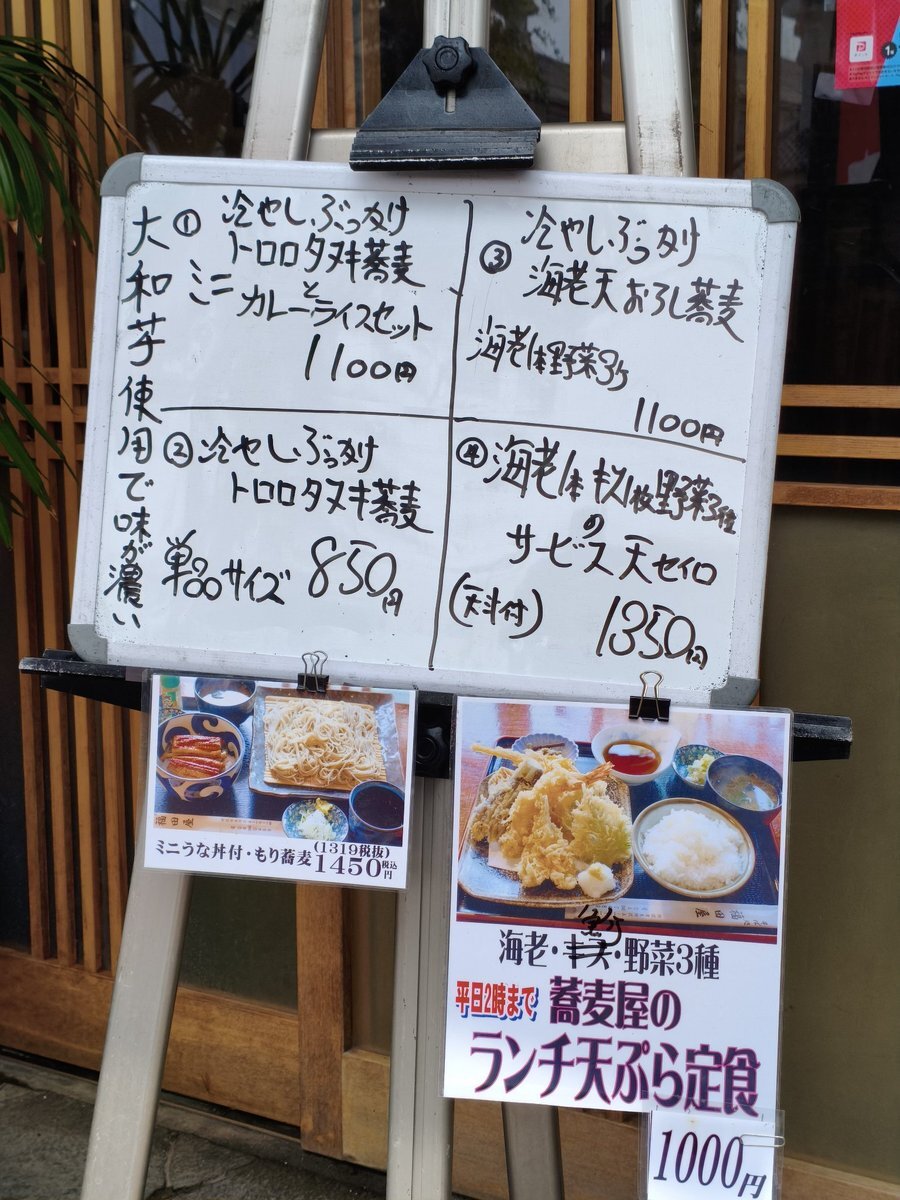 大和芋使用で味が濃い
① 冷やしぶっかけ
トロロタヌキ蕎麦
と
ミニカレーライスセット
1100円
② 冷やしぶっかけ
トロロタヌキ蕎麦
単品サイズ 850円
③ 冷やしぶっかけ
海老天おろし蕎麦
海老1本野菜3ヶ
1100円
④ 海老1本キス1枚野菜3種
の
サービス天セイロ
(天汁付) 1350円
福田屋
ミニうな丼付・もり蕎麦 (1319税抜)
1450円税込
福田屋
海老・キス・野菜3種
平日2時まで 蕎麦屋の
ランチ天ぷら定食
1000円